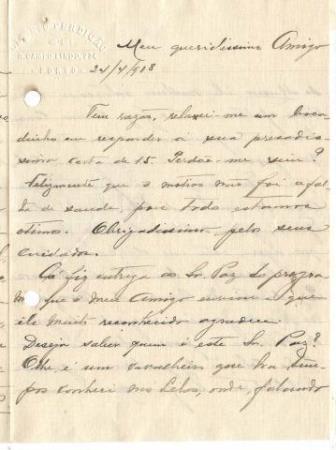 PERDIGÃO
PORTO
Meu queridissimo Amigo
24/4/908
Tem razão, relaxei-me um boca
dinho em responder á sua presadis
sima carta de 15. Perdôa-me sim?
Felizmente que o motivo não foi a fal
ta de saude, pois todos estamos
otimos. Obrigadissimo pelos seus
cuidados.
Já fiz entrega ao Sr. Paz do
que o meu Amigo enviou e que
ele muito reconhecido agradece.
Deseja saber quem é este Sr. Paz?
Olhe é um cavalheiro que ha tem
pos conheci nos Leões, onde, falando